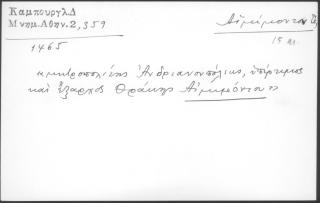 Καμπούρογλ.Δ
Μνημ.Αθην.2,359
Αἰμιμόντου
1465
15 αι.
"μητροπολίτης Ἀνδριανουπόλεως, ὑπέρτιμος
καὶ ἔξαρχος Θράκης Αἰμιμόντου"